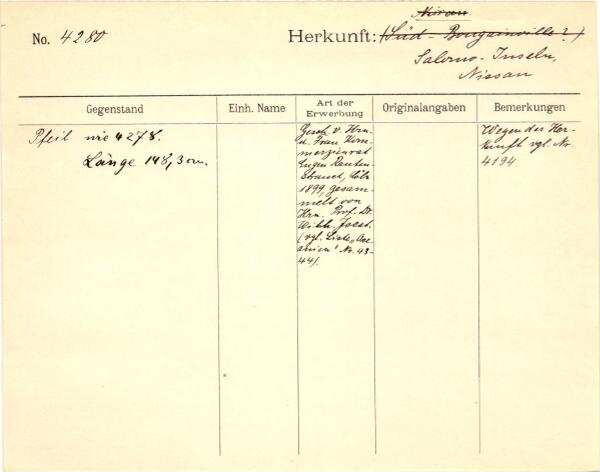 No. 4280
Herkunft: Nissan
(Süd-Bougainville?)
Salomo-Inseln,
Nissan
Gegenstand
Einh. Name
Art der
Erwerbung
Originalangaben
Bemerkungen
Pfeil wie 4278.
Länge 148,3 cm.
Gesch. v. Hrn.
u. Frau Kom-
merzienrat
Eugen Rauten-
strauch, Cöln
1899, gesam-
melt von
Hrn. Prof. Dr.
Wilh. Joest.
(vgl. Liste „Oze-
anien" Nr. 43-
44).
Wegen der Her-
kunft vgl. Nr.
4194